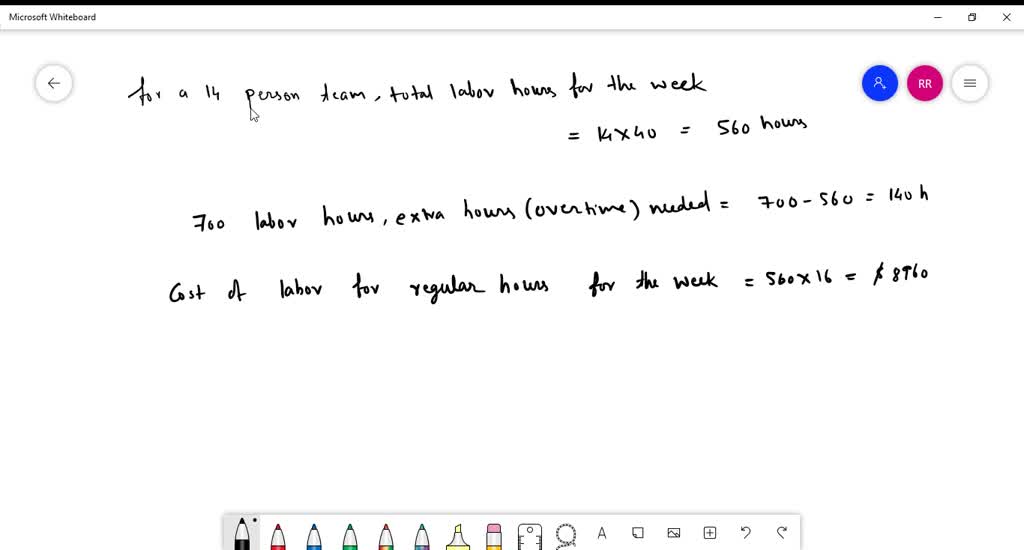 Microsoft Whiteboard
for a 14 person team, total labor hours for the week
RR
= 14×40 = 560 hours
700 labor hours, extra hours (overtime) needed = 700-560 = 140 h
Cost of labor for regular hours for the week = 560×16 = $8960
A